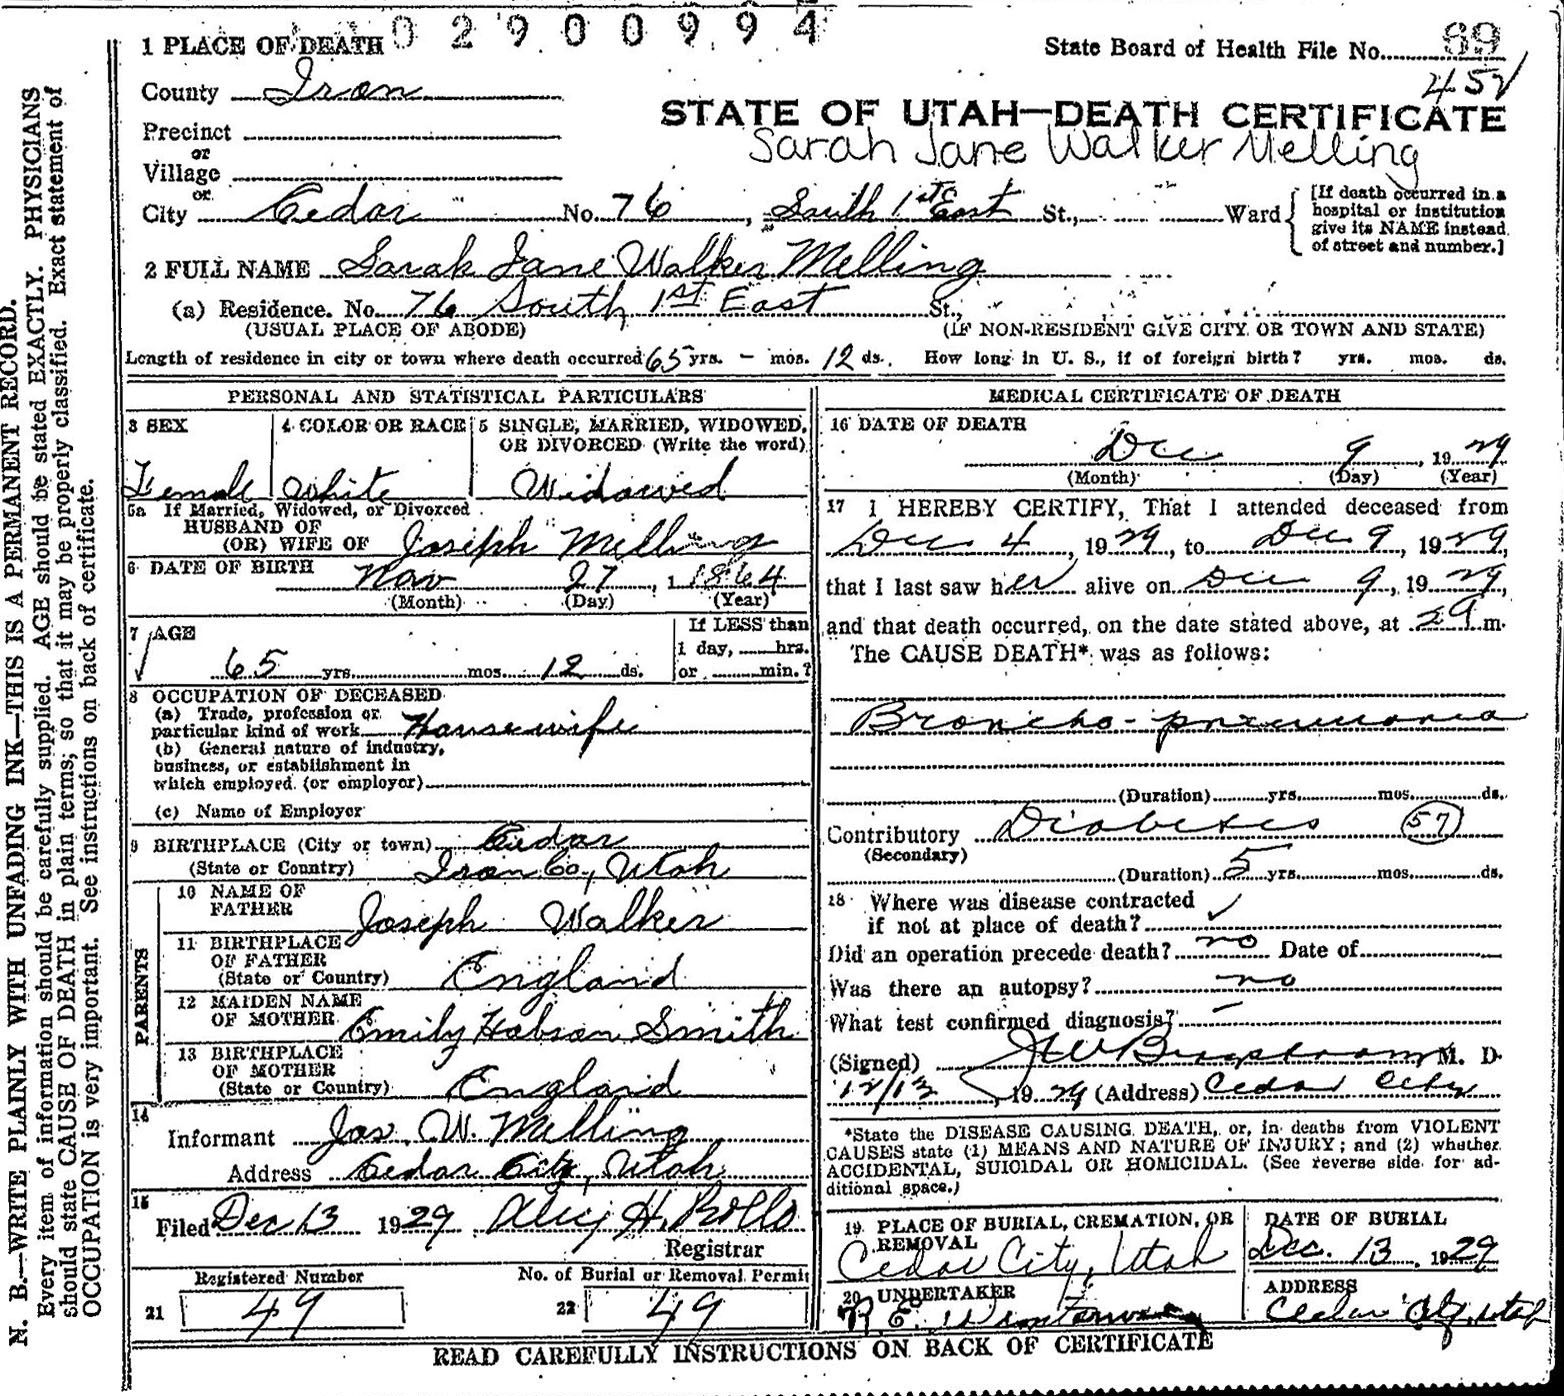 02900994
1 PLACE OF DEATH
State Board of Health File No. 89
452
County Iron
STATE OF UTAH—DEATH CERTIFICATE
Sarah Jane Walker Melling
Precinct
or
Village
or
City Cedar No. 76, South 1st East St., Ward
[If death occurred in a
hospital or institution
give its NAME instead
of street and number.]
2 FULL NAME Sarah Jane Walker Melling
(a) Residence. No. 76 South 1st East St.,
(USUAL PLACE OF ABODE) (IF NON-RESIDENT GIVE CITY OR TOWN AND STATE)
Length of residence in city or town where death occurred 65 yrs. – mos. 12 ds. How long in U. S., if of foreign birth? yrs. mos. ds.
PERSONAL AND STATISTICAL PARTICULARS
3 SEX
Female
4 COLOR OR RACE
White
5 SINGLE, MARRIED, WIDOWED,
OR DIVORCED (Write the word)
Widowed
5a If Married, Widowed, or Divorced
HUSBAND OF
(OR) WIFE OF Joseph Melling
6 DATE OF BIRTH Nov 27, 1 1864
(Month) (Day) (Year)
7 AGE
65 yrs. mos. 12 ds.
If LESS than
1 day, hrs.
or min.?
8 OCCUPATION OF DECEASED
(a) Trade, profession or
particular kind of work Housewife
(b) General nature of industry,
business, or establishment in
which employed (or employer)
(c) Name of Employer
9 BIRTHPLACE (City or town) Cedar
(State or Country) Iron Co., Utah
PARENTS
10 NAME OF
FATHER Joseph Walker
11 BIRTHPLACE
OF FATHER
(State or Country) England
12 MAIDEN NAME
OF MOTHER Emily Hobson Smith
13 BIRTHPLACE
OF MOTHER
(State or Country) England
14
Informant Jos. W. Melling
Address Cedar City, Utah
15
Filed Dec 13 1929 H. Bollo
Registrar
Registered Number
21 49
No. of Burial or Removal Permit
22 49
MEDICAL CERTIFICATE OF DEATH
16 DATE OF DEATH
Dec 9, 1929
(Month) (Day) (Year)
17 I HEREBY CERTIFY, That I attended deceased from
Dec 4, 1929, to Dec 9, 1929,
that I last saw her alive on Dec 9, 1929,
and that death occurred, on the date stated above, at 2 a m.
The CAUSE DEATH* was as follows:
Broncho-pneumonia
(Duration) yrs. mos. ds.
Contributory Diabetes 57
(Secondary)
(Duration) 5 yrs. mos. ds.
18 Where was disease contracted
if not at place of death? ✓
Did an operation precede death? no Date of
Was there an autopsy? no
What test confirmed diagnosis? –
(Signed) M. D.
12/13, 1929 (Address) Cedar City
*State the DISEASE CAUSING DEATH, or, in deaths from VIOLENT
CAUSES state (1) MEANS AND NATURE OF INJURY; and (2) whether
ACCIDENTAL, SUICIDAL OR HOMICIDAL. (See reverse side for ad-
ditional space.)
19 PLACE OF BURIAL, CREMATION, OR
REMOVAL
Cedar City, Utah
DATE OF BURIAL
Dec. 13 1929
20 UNDERTAKER
ADDRESS
Cedar City, Utah
READ CAREFULLY INSTRUCTIONS ON BACK OF CERTIFICATE
N. B.—WRITE PLAINLY WITH UNFADING INK—THIS IS A PERMANENT RECORD.
Every item of information should be carefully supplied. AGE should be stated EXACTLY. PHYSICIANS
should state CAUSE OF DEATH in plain terms; so that it may be properly classified. Exact statement of
OCCUPATION is very important. See instructions on back of certificate.